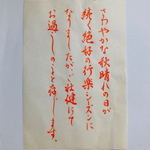 さわやかな秋晴れの日が
続く絶好の行楽シーズンに
なりましたがご壮健にて
お過しのことと存じます。